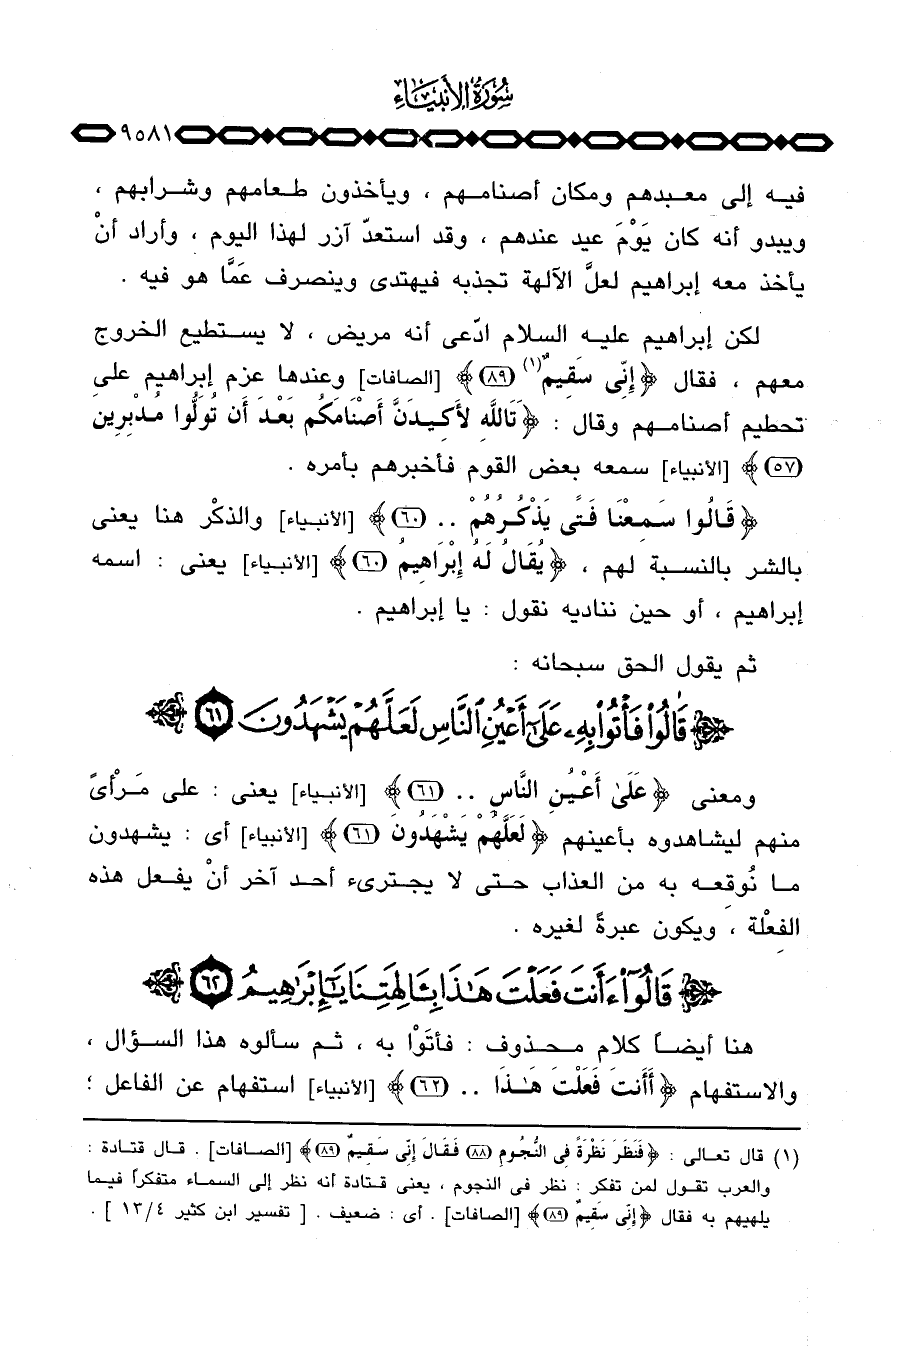 سُورَةُ الأَنبِيَاءِ
٩٥٨١
فيه إلى معبدهم ومكان أصنامهم ، ويأخذون طعامهم وشرابهم ،
ويبدو أنه كان يَوْمَ عيد عندهم ، وقد استعدّ آزر لهذا اليوم ، وأراد أنْ
يأخذ معه إبراهيم لعلَّ الآلهة تجذبه فيهتدى وينصرف عَمَّا هو فيه .
لكن إبراهيم عليه السلام ادّعى أنه مريض ، لا يستطيع الخروج
معهم ، فقال ﴿ إِنِّى سَقِيمٌ(١) (٨٩) ﴾ [الصافات] وعندها عزم إبراهيم على
تحطيم أصنامهم وقال : ﴿ تَاللَّهِ لأَكِيدَنَّ أَصْنَامَكُم بَعْدَ أَن تُوَلُّوا مُدْبِرِينَ
(٥٧) ﴾ [الأنبياء] سمعه بعض القوم فأخبرهم بأمره .
﴿ قَالُوا سَمِعْنَا فَتًى يَذْكُرُهُمْ .. (٦٠) ﴾ [الأنبياء] والذكْر هنا يعنى
بالشر بالنسبة لهم ، ﴿ يُقَالُ لَهُ إِبْرَاهِيمُ (٦٠) ﴾ [الأنبياء] يعنى : اسمه
إبراهيم ، أو حين نناديه نقول : يا إبراهيم .
ثم يقول الحق سبحانه :
﴿ قَالُوا۟ فَأْتُوا۟ بِهِۦ عَلَىٰٓ أَعْيُنِ ٱلنَّاسِ لَعَلَّهُمْ يَشْهَدُونَ ٦١ ﴾
ومعنى ﴿ عَلَىٰ أَعْيُنِ النَّاسِ .. (٦١) ﴾ [الأنبياء] يعنى : على مَرْأىً
منهم ليشاهدوه بأعينهم ﴿ لَعَلَّهُمْ يَشْهَدُونَ (٦١) ﴾ [الأنبياء] أى : يشهدون
ما نُوقعه به من العذاب حتى لا يجترىء أحد آخر أنْ يفعل هذه
الفعْلة ، ويكون عبرةً لغيره .
﴿ قَالُوٓا۟ ءَأَنتَ فَعَلْتَ هَـٰذَا بِـَٔالِهَتِنَا يَـٰٓإِبْرَٰهِيمُ ٦٢ ﴾
هنا أيضاً كلام محذوف : فأتَوْا به ، ثم سألوه هذا السؤال ،
والاستفهام ﴿ أَأَنتَ فَعَلْتَ هَـٰذَا .. (٦٢) ﴾ [الأنبياء] استفهام عن الفاعل ؛
(١) قال تعالى : ﴿ فَنَظَرَ نَظْرَةً فِى النُّجُومِ (٨٨) فَقَالَ إِنِّى سَقِيمٌ (٨٩) ﴾ [الصافات] . قال قتادة :
والعرب تقول لمن تفكر : نظر فى النجوم ، يعنى قتادة أنه نظر إلى السماء متفكراً فيما
يلهيهم به فقال ﴿ إِنِّى سَقِيمٌ (٨٩) ﴾ [الصافات] . أى : ضعيف . [ تفسير ابن كثير ١٣/٤ ] .